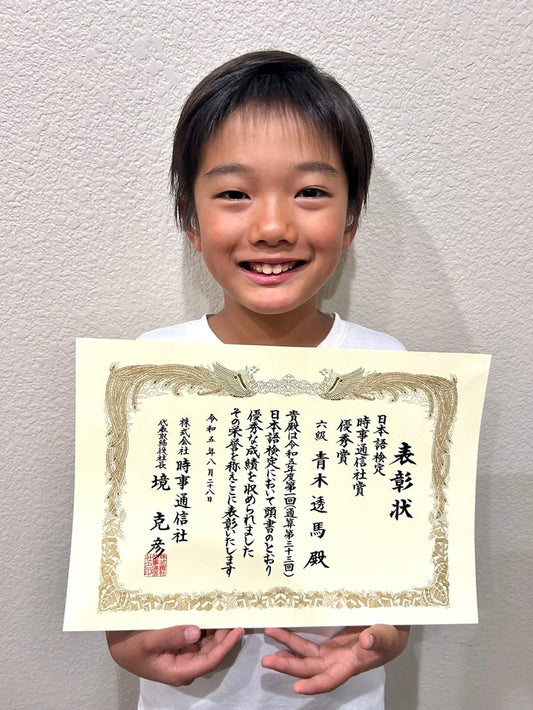 表彰状
日本語検定
時事通信社賞
優秀賞
六級 青木透馬殿
貴殿は令和五年度第一回(通算第三十三回)
日本語検定において頭書のとおり
優秀な成績を収められました
その栄誉を称えここに表彰いたします
令和五年八月二八日
株式会社 時事通信社
代表取締役社長 境 克彦